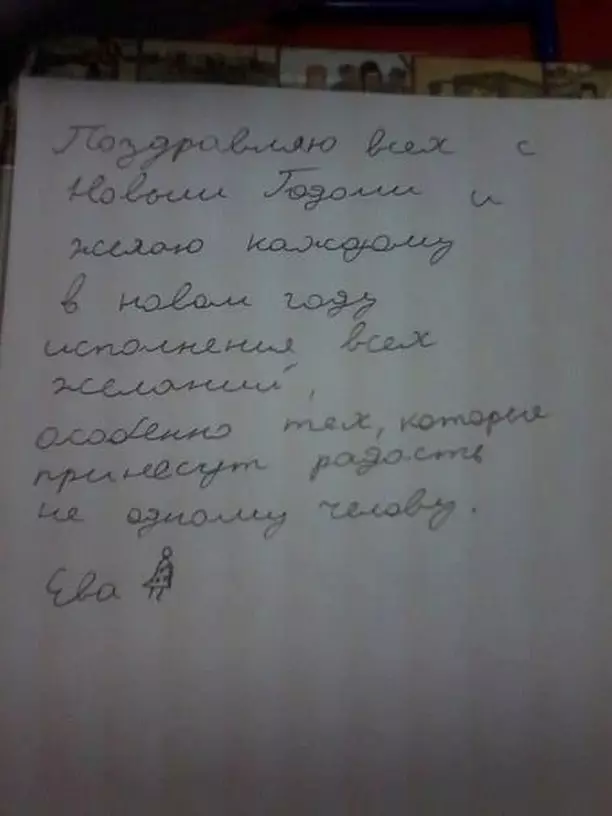 Поздравляю всех с
Новым Годом и
желаю каждому
в новом году
исполнения всех
желаний,
особенно тех, которые
принесут радость
не одному челову.
Ева